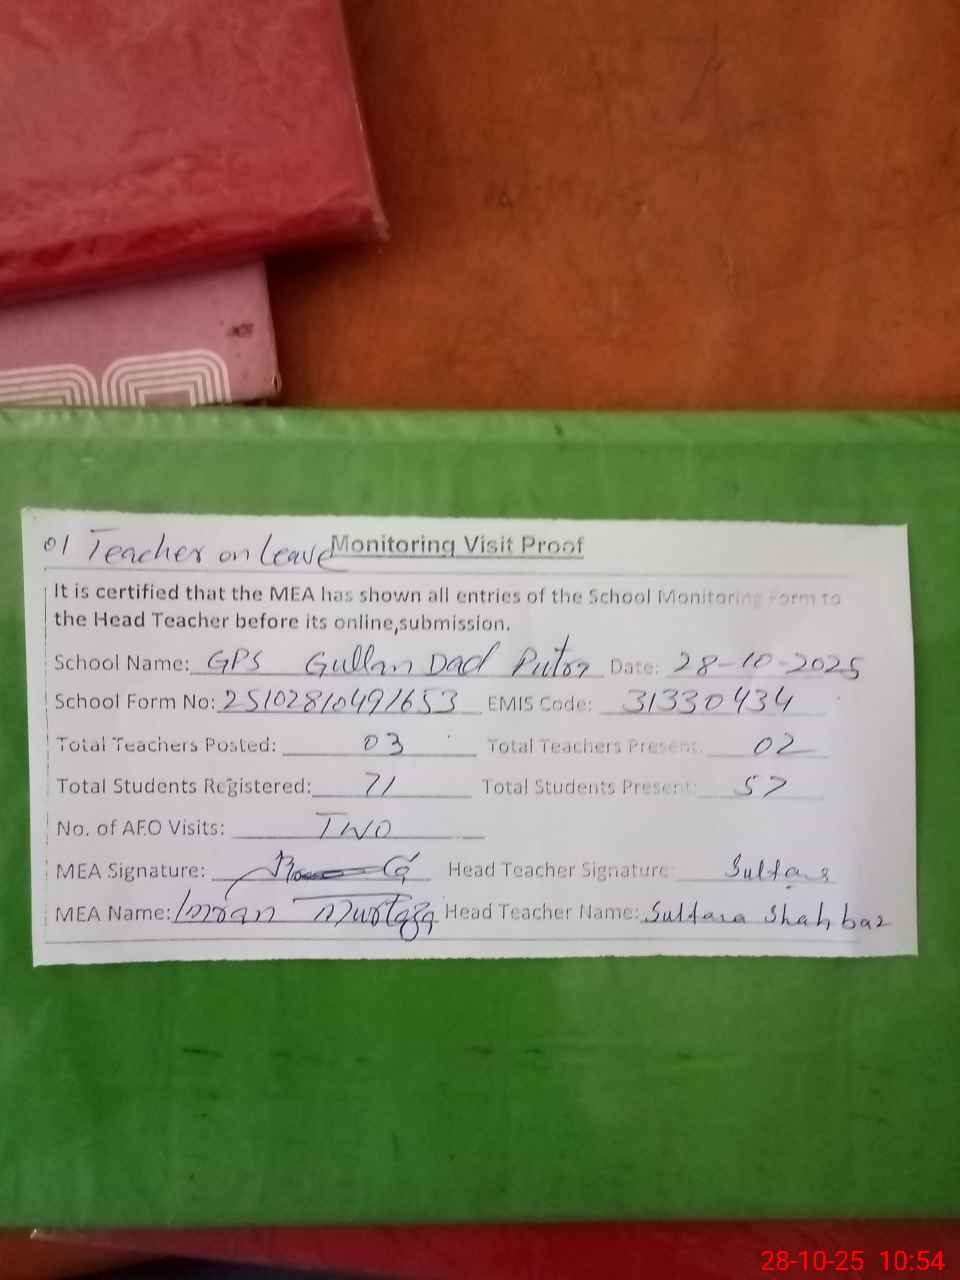 01 Teacher on Leave Monitoring Visit Proof
It is certified that the MEA has shown all entries of the School Monitoring Form to
the Head Teacher before its online,submission.
School Name: GPS Gullan Dad Date: 28-10-2025
School Form No: 25102810491653 EMIS Code: 31330434
Total Teachers Posted: 03 Total Teachers Present: 02
Total Students Registered: 71 Total Students Present: 57
No. of AEO Visits: TWO
MEA Signature: Head Teacher Signature: Sultana
MEA Name: Imran Murtaza Head Teacher Name: Sultana Shahbaz
28-10-25 10:54